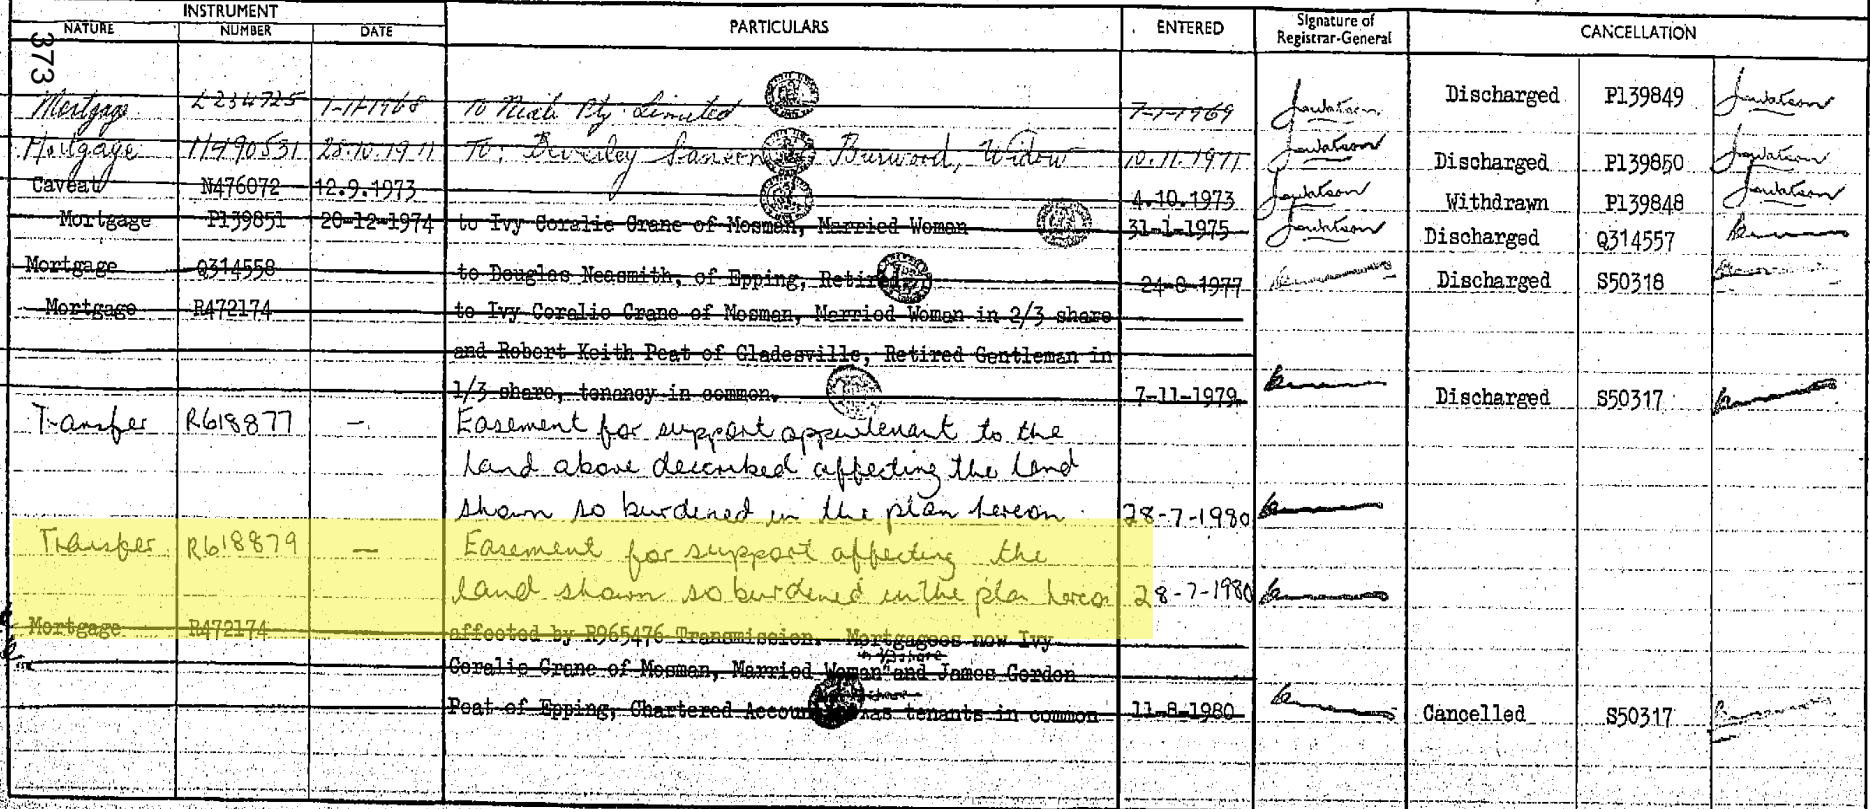 INSTRUMENT PARTICULARS ENTERED Signature of Registrar-General CANCELLATION
NATURE NUMBER DATE
373
Mortgage L234725 1-11-1968 To Niath Pty. Limited 7-1-1969 Discharged P139849
Mortgage M490531 28.10.1971 To: Beverley Burwood, Widow 10.11.1971 Discharged P139850
Caveat N476072 12.9.1973 4.10.1973 Withdrawn P139848
Mortgage P139851 20-12-1974 to Ivy Coralie Crane of Mosman, Married Woman 31-1-1975 Discharged Q314557
Mortgage Q314558 to Douglas Neasmith, of Epping, Retired. 24-8-1977 Discharged S50318
Mortgage R472174 to Ivy Coralie Crane of Mosman, Married Woman in 2/3 share
and Robert Keith Peat of Gladesville, Retired Gentleman in
1/3 share, tenancy in common. 7-11-1979 Discharged S50317
Transfer R618877 — Easement for support appurtenant to the
land above described affecting the land
shown so burdened in the plan hereon. 28-7-1980
Transfer R618879 — Easement for support affecting the
land shown so burdened in the plan hereon 28-7-1980
Mortgage R472174 affected by R965476 Transmission. Mortgagees now Ivy
Coralie Crane of Mosman, Married Woman and James Gordon
Peat of Epping, Chartered as tenants in common 11-8-1980 Cancelled S50317